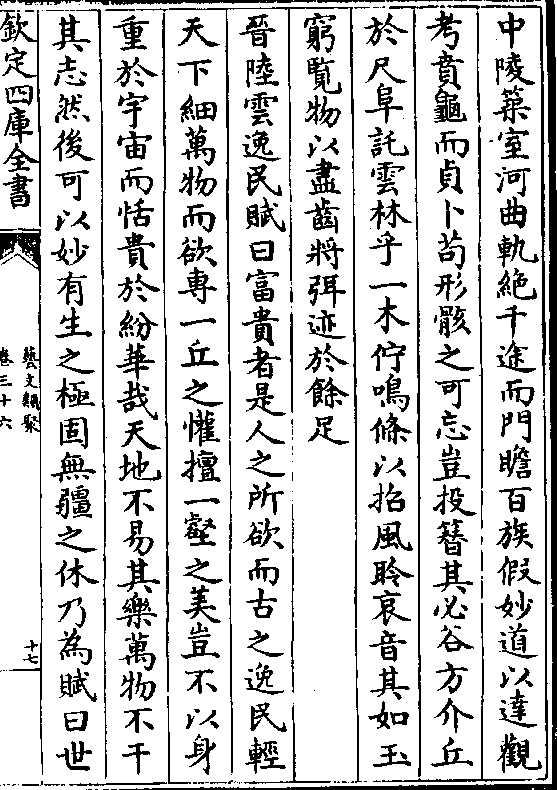 中陵築室河曲軌絶千途而門瞻百族假妙道以達觀
考賁龜而貞卜茍形骸之可忘豈投簮其必谷方介丘
於尺阜託雲林乎一木佇鳴條以招風聆哀音其如玉
窮覧物以盡齒將弭迹於餘足
晉陸雲逸民賦曰富貴者是人之所欲而古之逸民輕
天下細萬物而欲専一丘之懽擅一壑之美豈不以身
重於宇宙而恬貴於紛華哉天地不易其樂萬物不干
其志然後可以妙有生之極固無疆之休乃為賦曰世
欽定四庫全書
藝文類聚
卷三十六
十七